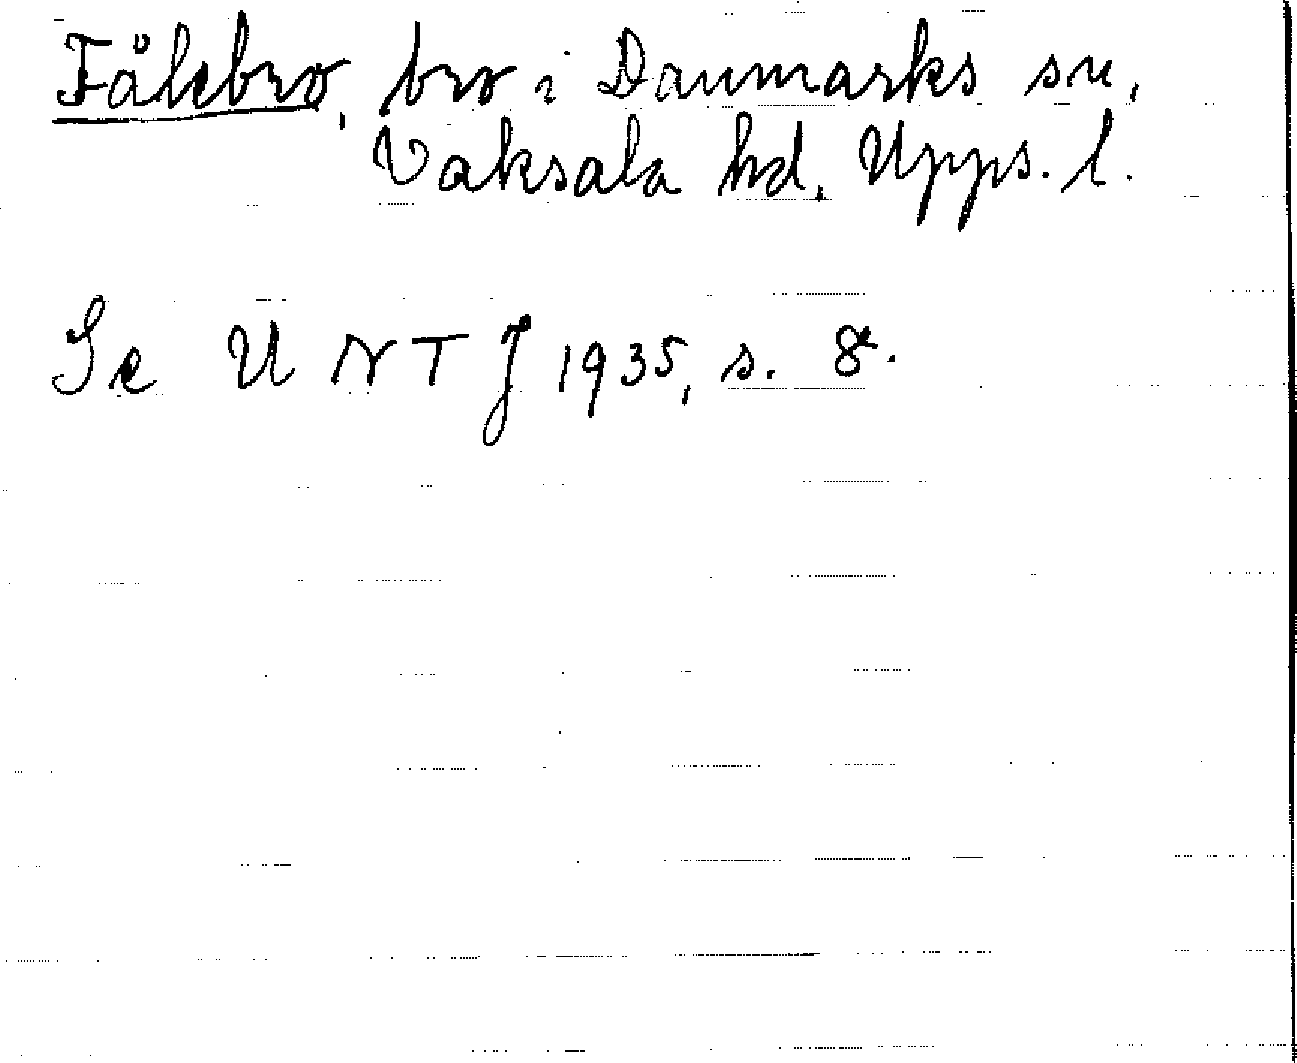 Fålebro, bro i Danmarks sn,
Vaksala hd. Upps. l.
Se UNTJ 1935, s. 8.